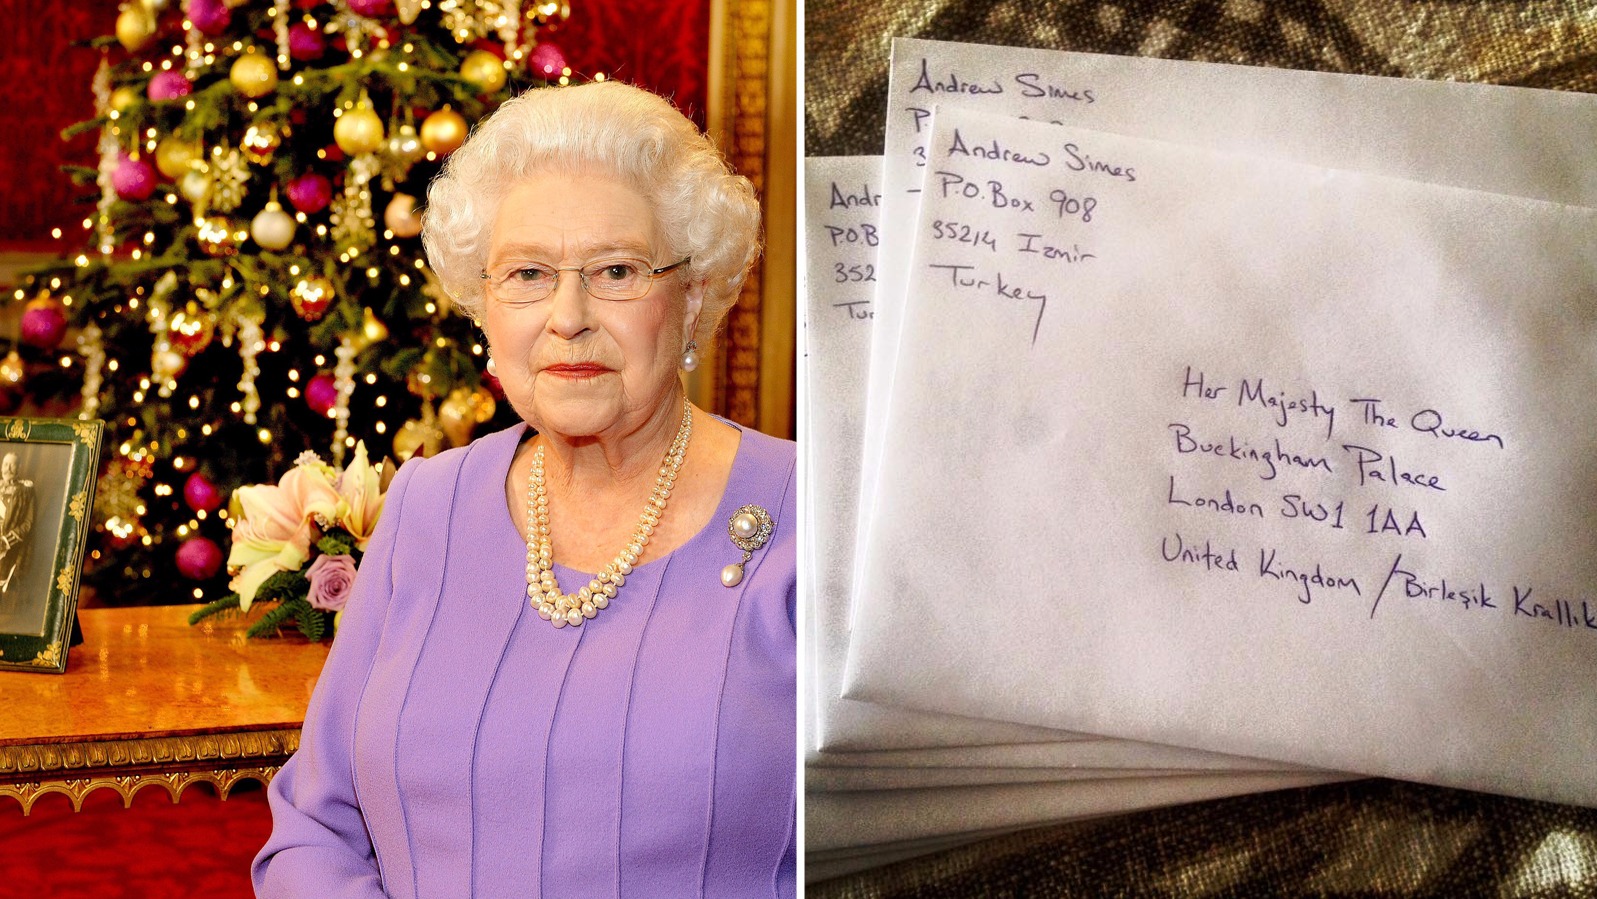 Andrew Simes
P.
3
Andr
P.O.B
352
Tur
Andrew Simes
P.O.Box 908
35214 Izmir
Turkey
Her Majesty The Queen
Buckingham Palace
London SW1 1AA
United Kingdom / Birleşik Krallık